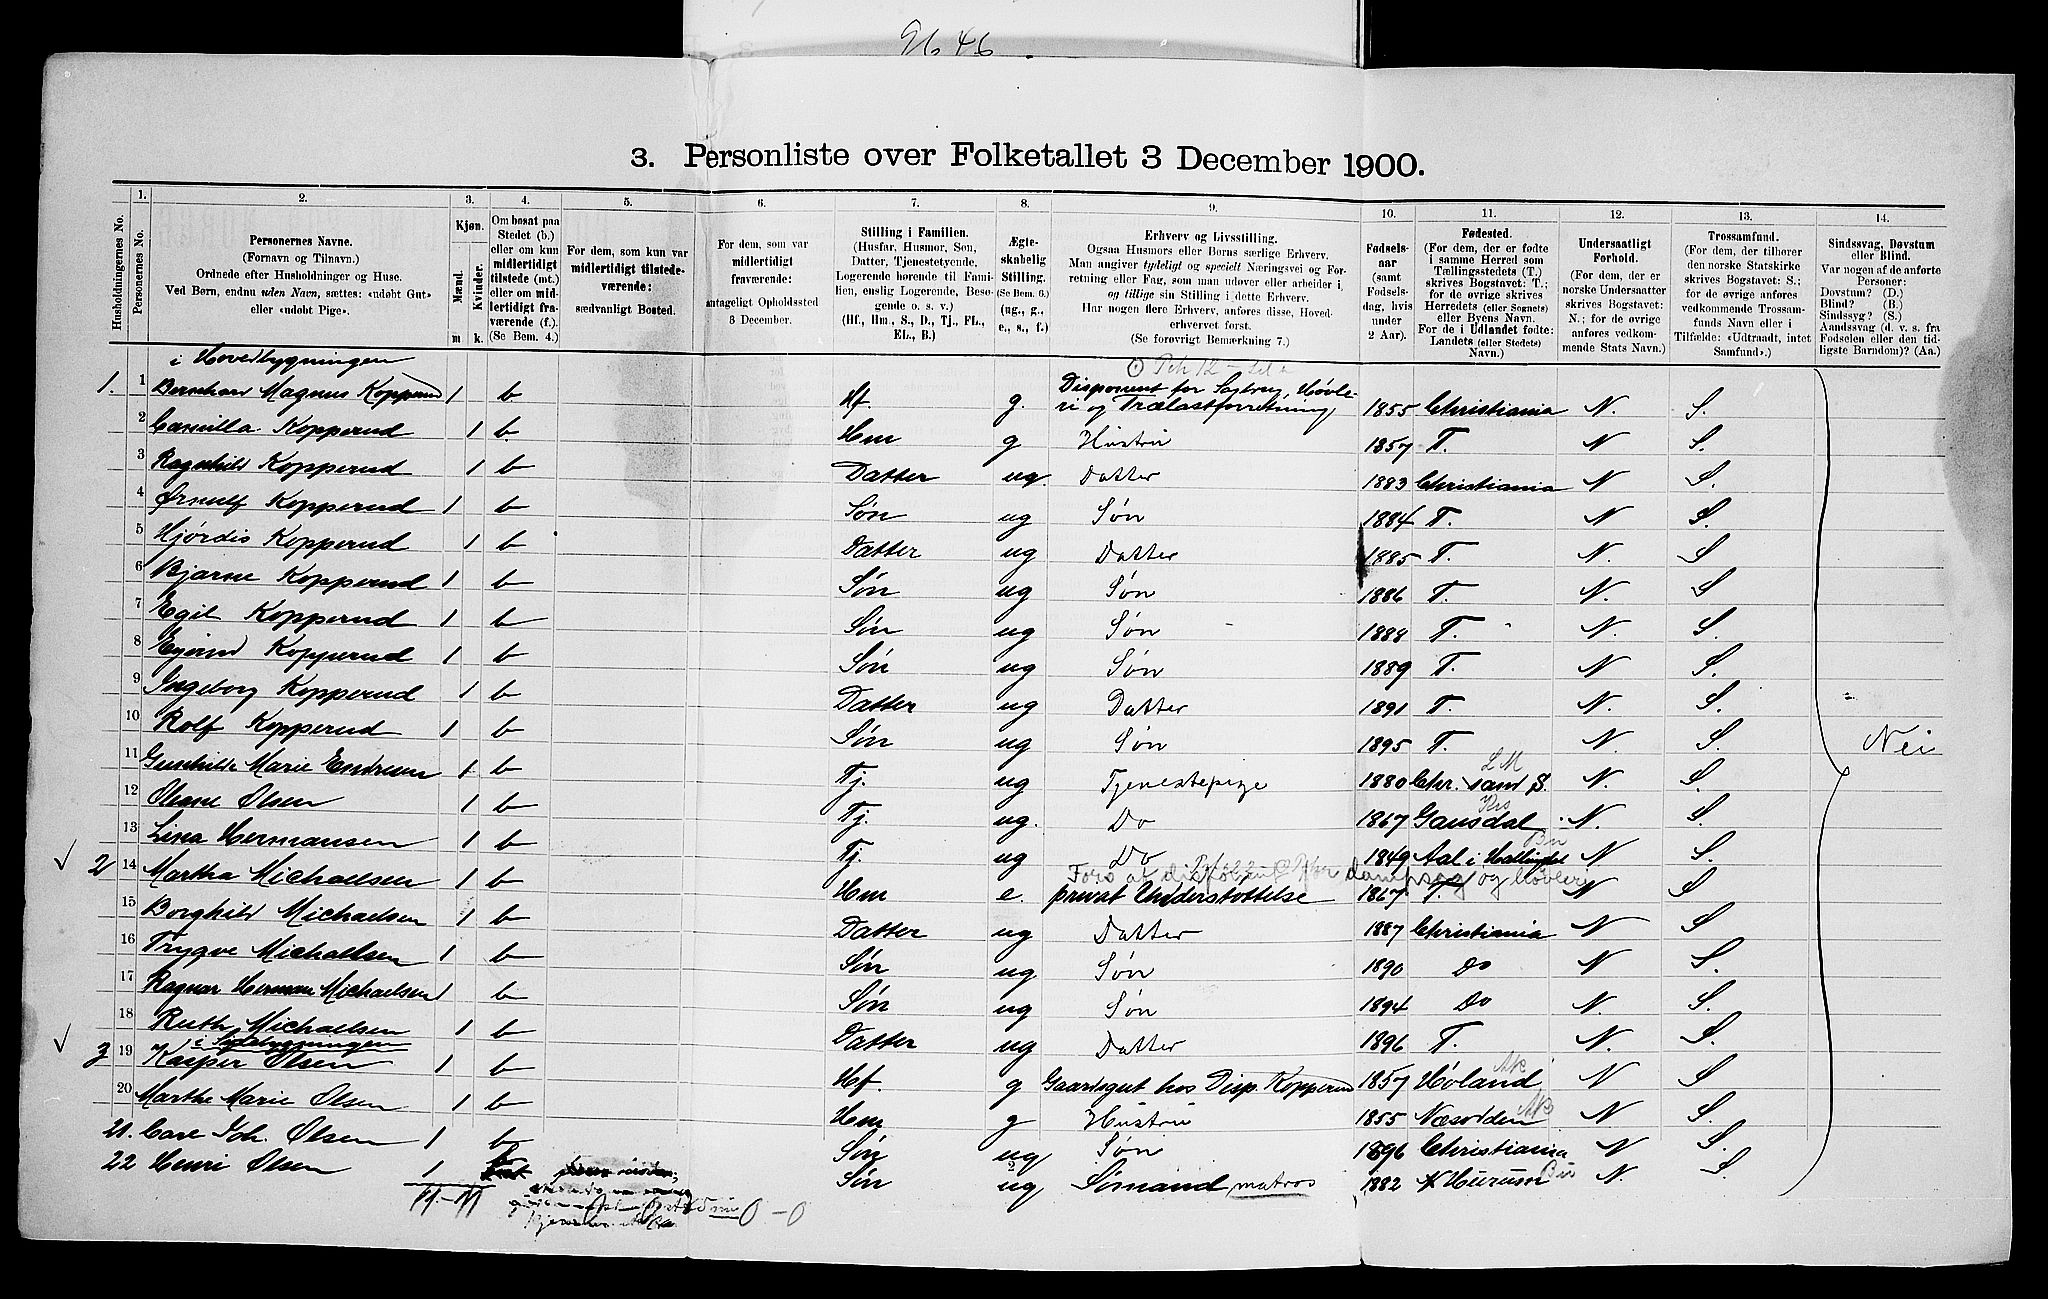 9646
3. Personliste over Folketallet 3 December 1900.
1. 2. 3. 4. 5. 6. 7. 8. 9. 10. 11. 12. 13. 14.
Husholdningernes No.
Personernes No.
Personernes Navne.
(Fornavn og Tilnavn.)
Ordnede efter Husholdninger og Huse.
Ved Børn, endnu uden Navn, sættes: «udøbt Gut»
eller «udøbt Pige».
Kjøn.
Mænd.
Kvinder.
m k.
Om bosat paa
Stedet (b.)
eller om kun
midlertidigt
tilstede (mt.)
eller om mid-
lertidigt fra-
værende (f.).
(Se Bem. 4.)
For dem, som kun var
midlertidigt tilstede-
værende:
sædvanligt Bosted.
For dem, som var
midlertidigt
fraværende:
antageligt Opholdssted
3 December.
Stilling i Familien.
(Husfar, Husmor, Søn,
Datter, Tjenestetyende,
Logerende hørende til Fami-
lien, enslig Logerende, Besø-
gende o. s. v.)
(Hf., Hm., S., D., Tj., FL.,
EL., B.)
Ægte-
skabelig
Stilling.
(Se Bem. 6.)
(ug., g.,
e., s., f.)
Erhverv og Livsstilling.
Ogsaa Husmors eller Børns særlige Erhverv.
Man angiver tydeligt og specielt Næringsvei og For-
retning eller Fag, som man udøver eller arbeider i,
og tillige sin Stilling i dette Erhverv.
Har nogen flere Erhverv, anføres disse, Hoved-
erhvervet først.
(Se forøvrigt Bemærkning 7.)
Fødsels-
aar
(samt
Fødsels-
dag, hvis
under
2 Aar).
Fødested.
(For dem, der er fødte
i samme Herred som
Tællingsstedets (T.)
skrives Bogstavet: T.;
for de øvrige skrives
Herredets (eller Sognets)
eller Byens Navn.
For de i Udlandet fødte:
Landets (eller Stedets)
Navn.)
Undersaatligt
Forhold.
(For dem, der er
norske Undersaatter
skrives Bogstavet:
N.; for de øvrige
anføres vedkom-
mende Stats Navn.)
Trossamfund.
(For dem, der tilhører
den norske Statskirke
skrives Bogstavet: S.;
for de øvrige anføres
vedkommende Trossam-
funds Navn eller i
Tilfælde: «Udtraadt, intet
Samfund».)
Sindssvag, Døvstum
eller Blind.
Var nogen af de anførte
Personer:
Døvstum? (D.)
Blind? (B.)
Sindssyg? (S.)
Aandssvag (d. v. s. fra
Fødselen eller den tid-
ligste Barndom)? (Aa.)
i Hovedbygningen
1. 1 Bernhard Magnus Kopperud 1 b Hf. g. Disponent for Sagbrug, Høvle-
ri og Trælastforretning 1855 Christiania N. S.
2 Camilla Kopperud 1 b. Hm g Hustru 1857 T. N S.
3 Ragnhild Kopperud 1 b Datter ug. Datter 1883 Christiania N S.
4 Ørnulf Kopperud 1 b Søn ug Søn 1884 T. N S.
5 Hjørdis Kopperud 1 b Datter ug Datter 1885 T. N. S
6 Bjarne Kopperud 1 b Søn ug Søn 1886 T. N. S
7 Egil Kopperud 1 b Søn ug Søn 1888 T. N. S.
8 Eyvind Kopperud 1 b Søn ug Søn 1889 T. N S.
9 Ingeborg Kopperud 1 b Datter ug Datter 1891 T. N. S.
10 Rolf Kopperud 1 b Søn ug Søn 1895 T. N. S. Nei
11 Gunhilde Marie Endresen 1 b Tj. ug Tjenestepige 1880 Chr. sand S. LM N. S.
12 Oleane Olsen 1 b Tj. ug. Do 1867 Gausdal N. S.
13 Lina Hermansen 1 b Tj. ug Do 1849 Aal i Hallingdal Bu N S.
2 14 Martha Michaelsen 1 b Hm e. privat Understøttelse 1867 T. N S
15 Borghild Michaelsen 1 b Datter ug Datter 1887 Christiania N S
16 Trygve Michaelsen 1 b Søn ug Søn 1890 Do N S.
17 Ragnar Herman Michaelsen 1 b Søn ug Søn 1894 Do N. S.
18 Ruth Michaelsen 1 b Datter ug Datter 1896 T. N. S.
i Sidebygningen
3 19 Kasper Olsen 1 b Hf. g Gaardsgut hos Disp. Kopperud 1857 Høland AK N S
20 Marthe Marie Olsen 1 b Hm g Hustru 1855 Næsodden AK N S.
21. Carl Joh. Olsen 1 b Søn ug Søn 1896 Christiania N S.
22 Henri Olsen 1 Søn ug Sømand matros 1882 Hurum Bu N. S
11-11 0-0